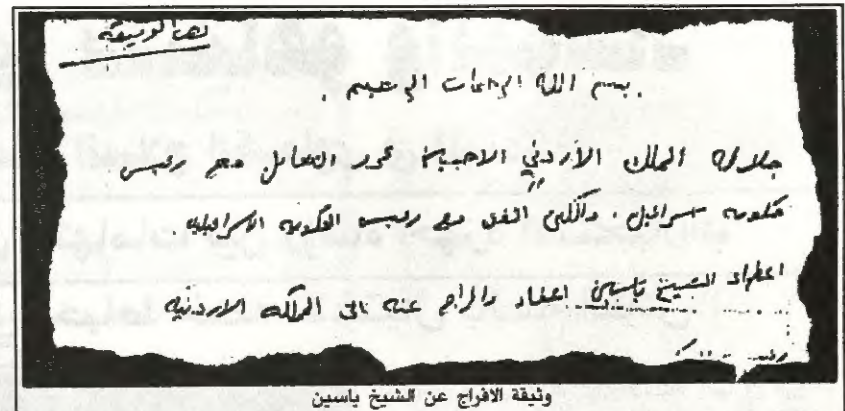 نص الوثيقة
بسم الله الرحمات الرحيم.
جلالة الملك الأردني الاحبين محور التعامل مع رئيس
حكومة اسرائيل، والملك اتفق مع رئيس الحكومة الاسرائيلية.
الشيخ ياسين والراج عنه الى المملكة الاردنية
وثيقة الافراج عن الشيخ ياسين